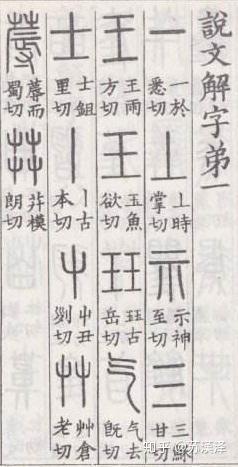 說文解字弟一
一 一於悉切 丄 丄時掌切 示 示神至切 三 三穌甘切
王 王雨方切 玉 玉魚欲切 玨 玨古岳切 气 气去旣切
士 士鉏里切 丨 丨古本切 屮 屮丑列切 艸 艸倉老切
蓐 蓐而蜀切 茻 茻模朗切
知乎